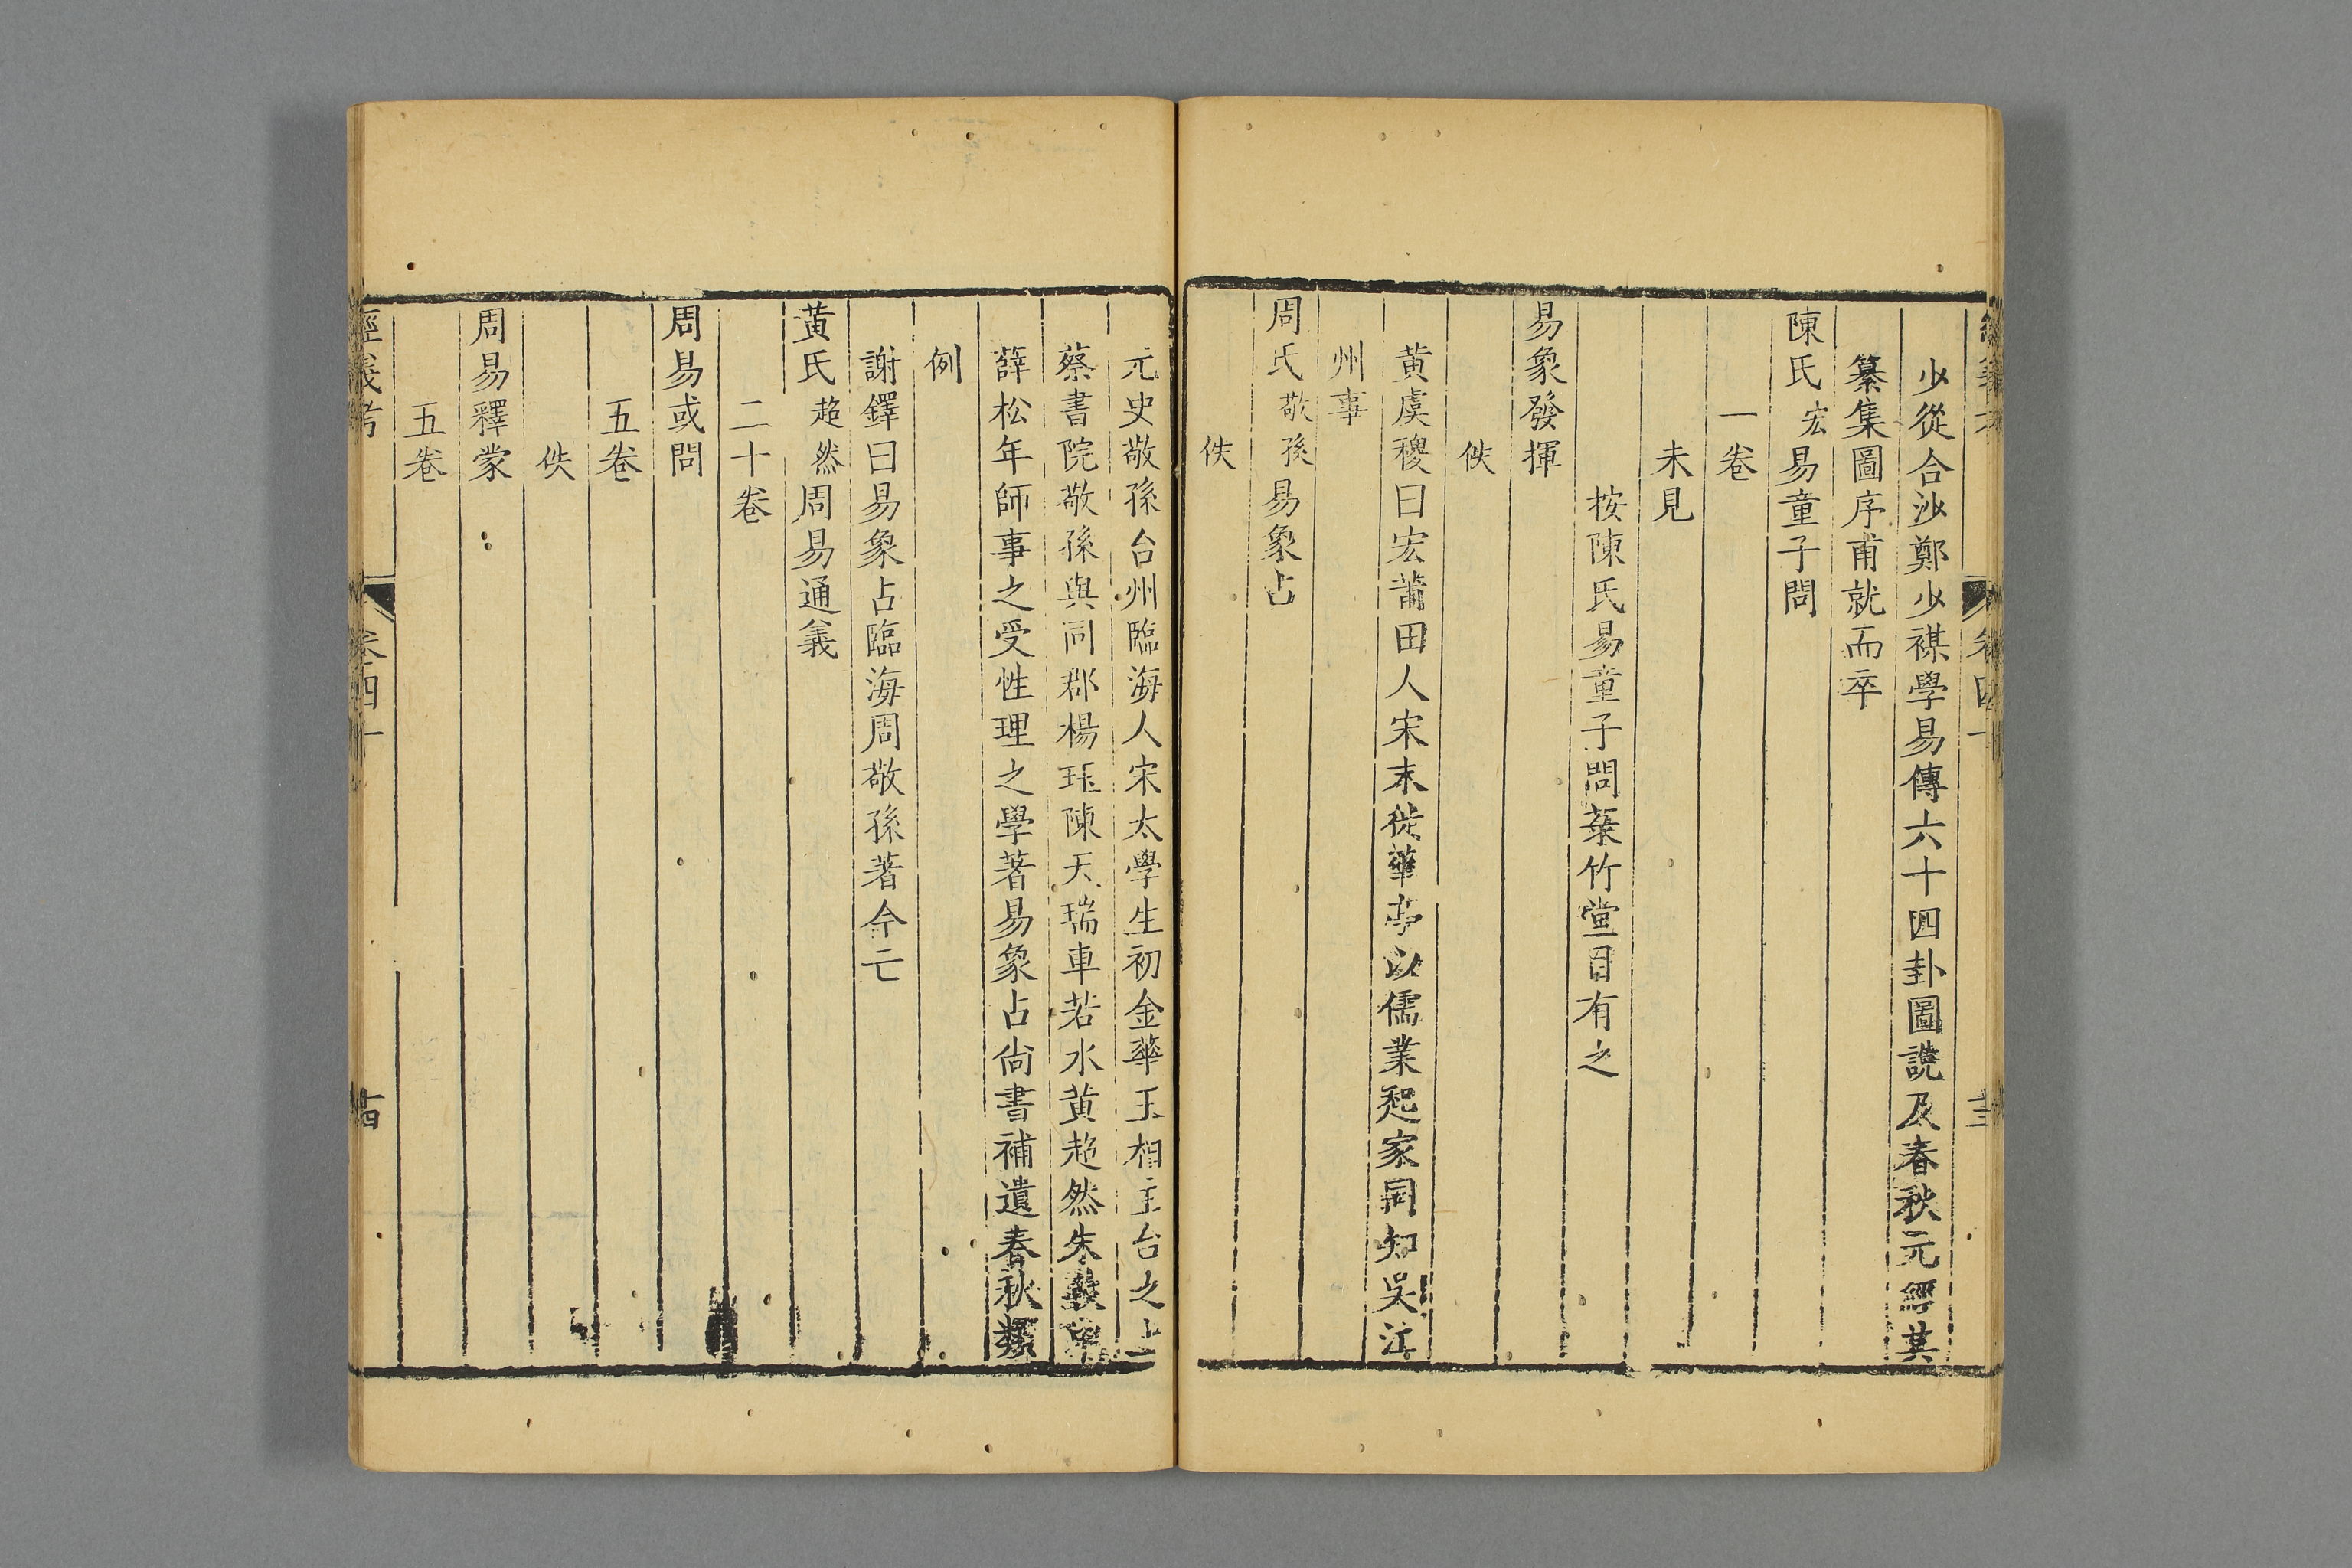 少從合沙鄭少禖學易傳六十四卦圖說及春秋元經其
纂集圖序甫就而卒
陳氏宏易童子問
一卷
未見
按陳氏易童子問菉竹堂目有之
易象發揮
佚
黄虞稷曰宏莆田人宋末徙華亭以儒業起家同知吳江
州事
周氏敬孫易象占
佚
元史敬孫台州臨海人宋太學生初金華王柏主台之上
蔡書院敬孫與同郡楊珏陳天瑞車若水黄超然朱致
薛松年師事之受性理之學著易象占尚書補遺春秋類
例
謝鐸曰易象占臨海周敬孫著今亡
黄氏超然周易通義
二十卷
周易或問
五卷
佚
周易釋蒙
五卷
經義考 卷四十 十四